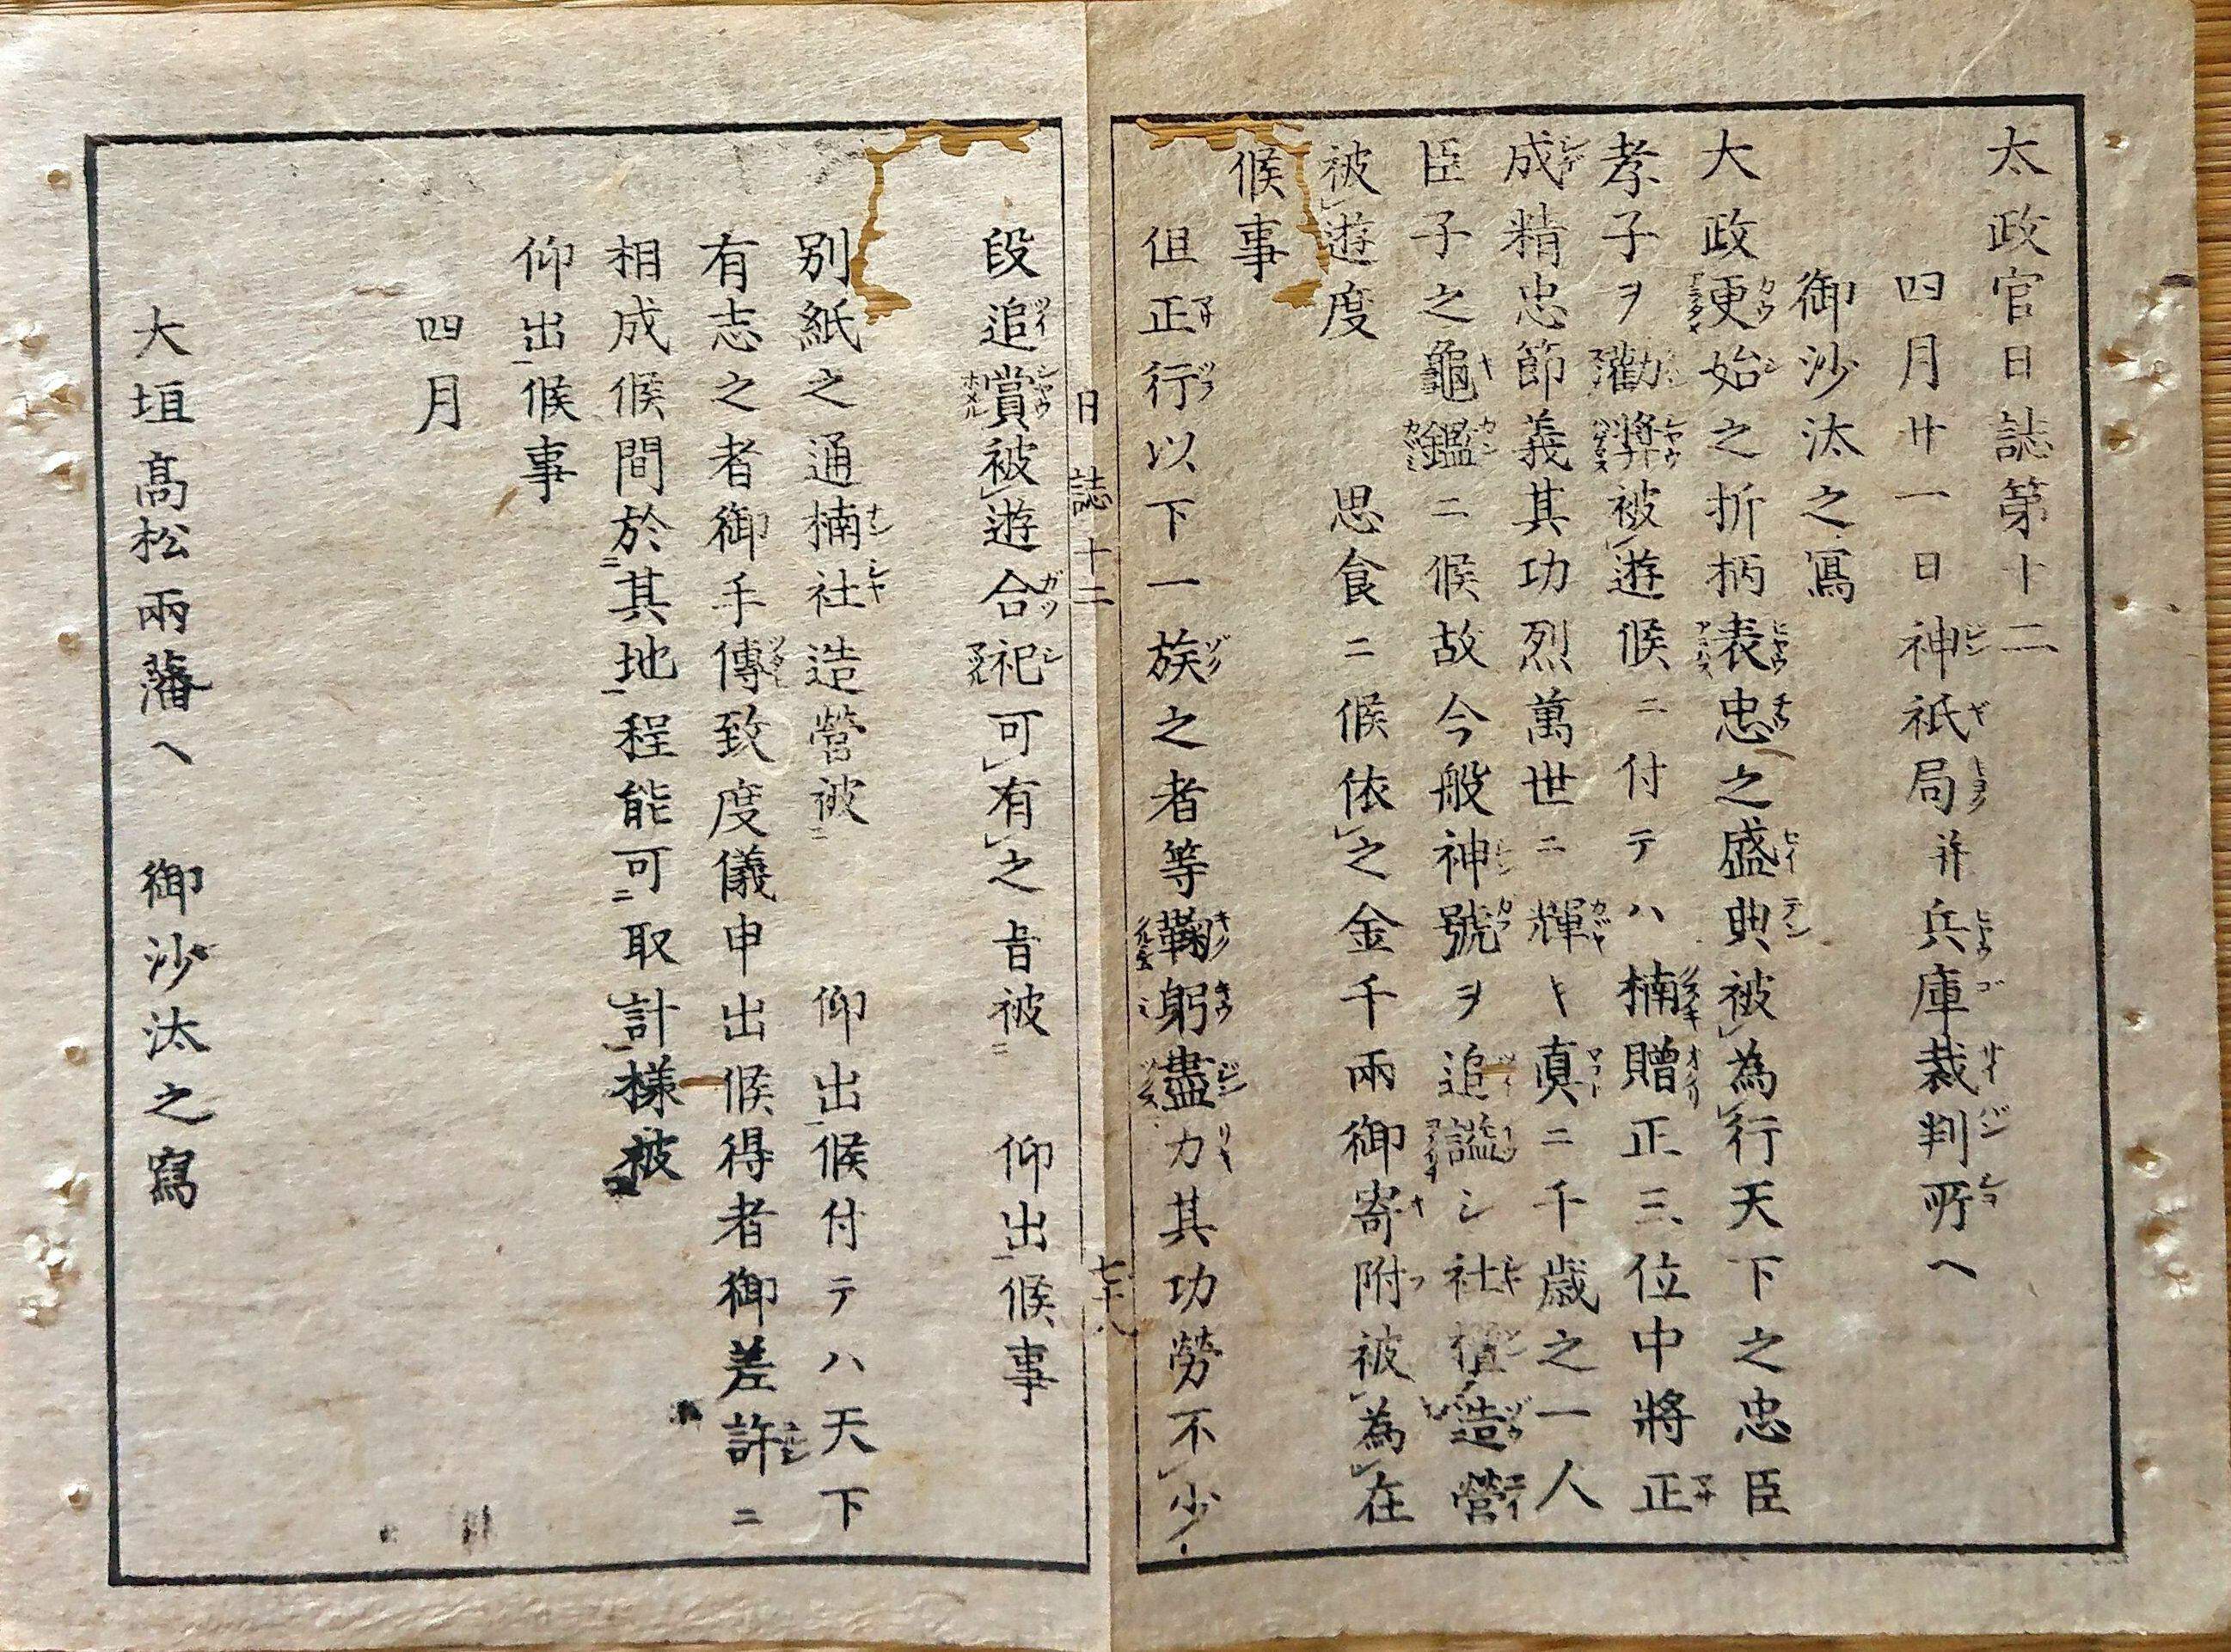 太政官日誌第十二
四月廿一日神祇局并兵庫裁判所ヘ
御沙汰之寫
大政更始之折柄表忠之盛典被為行天下之忠臣
孝子ヲ勸奬被遊候ニ付テハ楠贈正三位中將正
成精忠節義其功烈萬世ニ輝キ真ニ千歳之一人
臣子之龜鑑ニ候故今般神號ヲ追謚シ社壇造營
被遊度　思食ニ候依之金千兩御寄附被為在
候事
但正行以下一族之者等鞠躬盡力其功勞不少
日誌十二　七十八
段追賞被遊合祀可有之旨被　仰出候事
別紙之通楠社造營被　仰出候付テハ天下
有志之者御手傳致度儀申出候得者御差許ニ
相成候間於其地程能可取計様被
仰出候事
四月
大垣髙松兩藩ヘ　御沙汰之寫